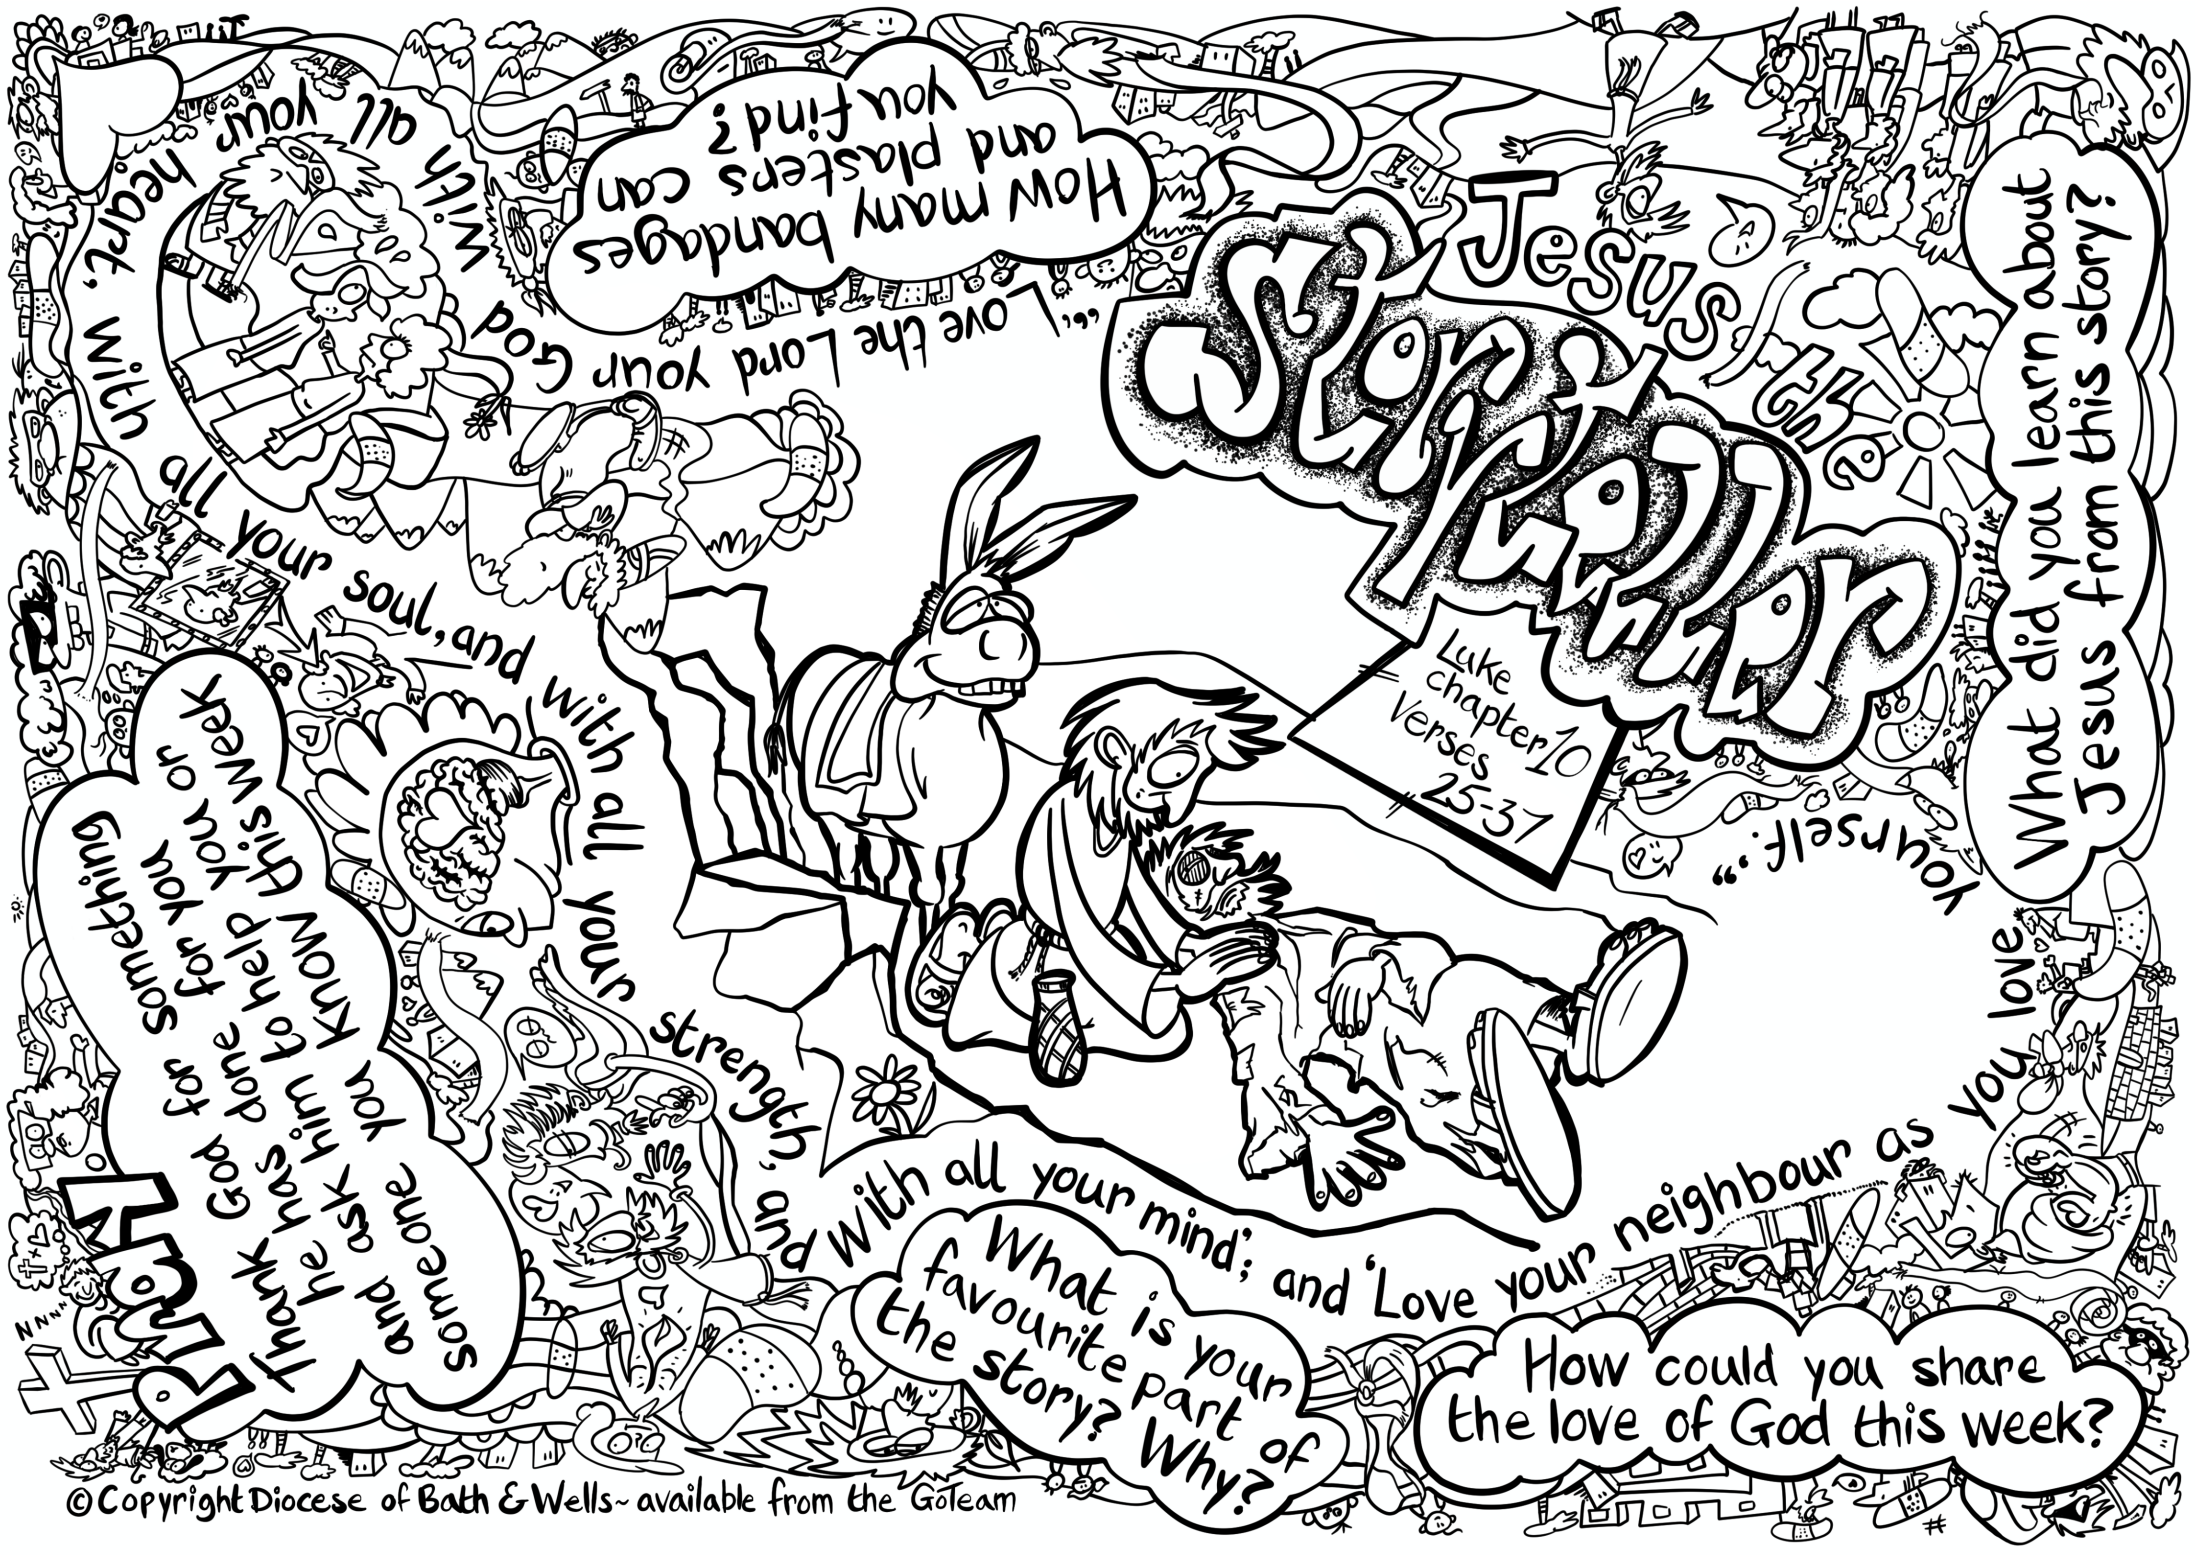 Jesus
the
Storyteller
Luke
chapter 10
Verses
25-37
How many bandages
and plasters can
you find?
What did you learn about
Jesus from this story?
"'Love the Lord your God
with all your heart, with
all your soul, and with all your
strength, and with all your mind'; and 'Love your neighbour as you love
yourself.'"
Pray
Thank God for something
he has done for you or
and ask him to help you or
someone you know this week
What is your
favourite part of
the story? Why?
How could you share
the love of God this week?
NNNN
© Copyright Diocese of Bath & Wells ~ available from the GoTeam